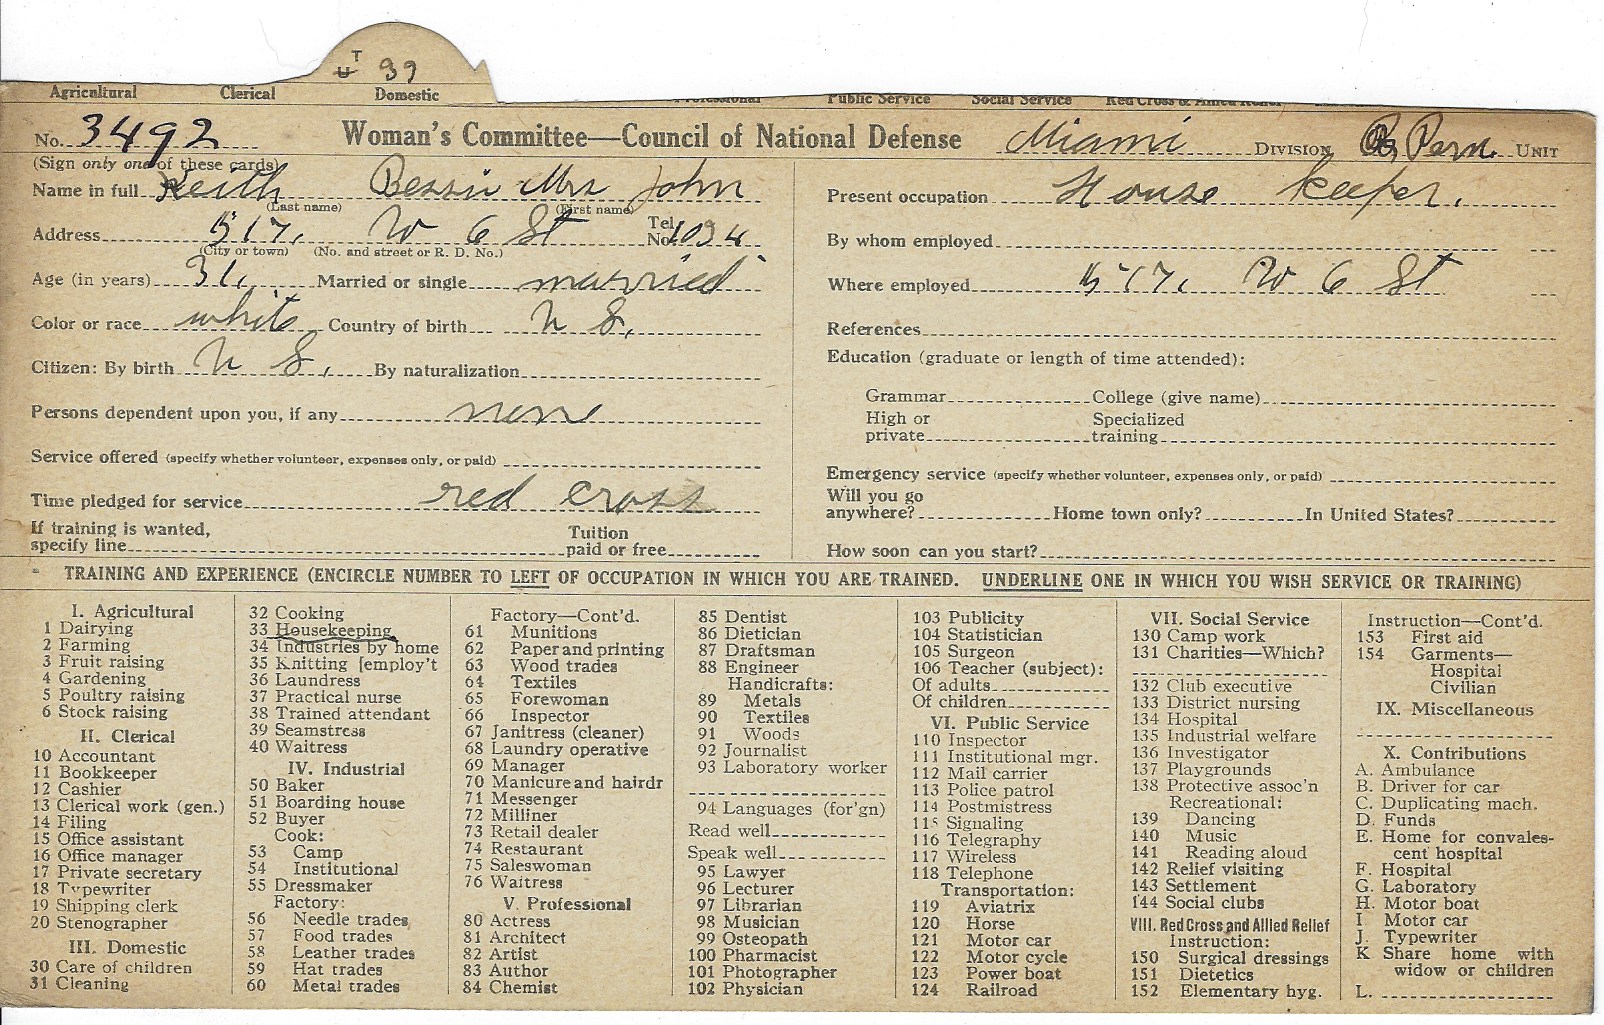 T
U 39
Agricultural Clerical Domestic Professional Public Service Social Service Red Cross & Allied Relief
No. 3492 Woman's Committee—Council of National Defense Miami DIVISION Pern. UNIT
(Sign only one of these cards)
Name in full Keith Bessie Mrs John
(Last name) (First name)
Address 517. W 6 St Tel. No. 1034
(City or town) (No. and street or R. D. No.)
Age (in years) 31. Married or single married
Color or race white Country of birth U S.
Citizen: By birth U S. By naturalization
Persons dependent upon you, if any none
Service offered (specify whether volunteer, expenses only, or paid)
Time pledged for service red cross
If training is wanted, specify line Tuition paid or free
Present occupation House keeper.
By whom employed
Where employed 517. W 6 St
References
Education (graduate or length of time attended):
Grammar College (give name)
High or private Specialized training
Emergency service (specify whether volunteer, expenses only, or paid)
Will you go anywhere? Home town only? In United States?
How soon can you start?
TRAINING AND EXPERIENCE (ENCIRCLE NUMBER TO LEFT OF OCCUPATION IN WHICH YOU ARE TRAINED. UNDERLINE ONE IN WHICH YOU WISH SERVICE OR TRAINING)
I. Agricultural
1 Dairying
2 Farming
3 Fruit raising
4 Gardening
5 Poultry raising
6 Stock raising
II. Clerical
10 Accountant
11 Bookkeeper
12 Cashier
13 Clerical work (gen.)
14 Filing
15 Office assistant
16 Office manager
17 Private secretary
18 Typewriter
19 Shipping clerk
20 Stenographer
III. Domestic
30 Care of children
31 Cleaning
32 Cooking
33 Housekeeping
34 Industries by home
35 Knitting [employ't
36 Laundress
37 Practical nurse
38 Trained attendant
39 Seamstress
40 Waitress
IV. Industrial
50 Baker
51 Boarding house
52 Buyer
Cook:
53 Camp
54 Institutional
55 Dressmaker
Factory:
56 Needle trades
57 Food trades
58 Leather trades
59 Hat trades
60 Metal trades
Factory—Cont'd.
61 Munitions
62 Paper and printing
63 Wood trades
64 Textiles
65 Forewoman
66 Inspector
67 Janitress (cleaner)
68 Laundry operative
69 Manager
70 Manicure and hairdr
71 Messenger
72 Milliner
73 Retail dealer
74 Restaurant
75 Saleswoman
76 Waitress
V. Professional
80 Actress
81 Architect
82 Artist
83 Author
84 Chemist
85 Dentist
86 Dietician
87 Draftsman
88 Engineer
Handicrafts:
89 Metals
90 Textiles
91 Woods
92 Journalist
93 Laboratory worker
94 Languages (for'gn)
Read well
Speak well
95 Lawyer
96 Lecturer
97 Librarian
98 Musician
99 Osteopath
100 Pharmacist
101 Photographer
102 Physician
103 Publicity
104 Statistician
105 Surgeon
106 Teacher (subject):
Of adults
Of children
VI. Public Service
110 Inspector
111 Institutional mgr.
112 Mail carrier
113 Police patrol
114 Postmistress
115 Signaling
116 Telegraphy
117 Wireless
118 Telephone
Transportation:
119 Aviatrix
120 Horse
121 Motor car
122 Motor cycle
123 Power boat
124 Railroad
VII. Social Service
130 Camp work
131 Charities—Which?
132 Club executive
133 District nursing
134 Hospital
135 Industrial welfare
136 Investigator
137 Playgrounds
138 Protective assoc'n
Recreational:
139 Dancing
140 Music
141 Reading aloud
142 Relief visiting
143 Settlement
144 Social clubs
VIII. Red Cross and Allied Relief
Instruction:
150 Surgical dressings
151 Dietetics
152 Elementary hyg.
Instruction—Cont'd.
153 First aid
154 Garments—
Hospital
Civilian
IX. Miscellaneous
X. Contributions
A. Ambulance
B. Driver for car
C. Duplicating mach.
D. Funds
E. Home for convales-
cent hospital
F. Hospital
G. Laboratory
H. Motor boat
I Motor car
J. Typewriter
K Share home with
widow or children
L.